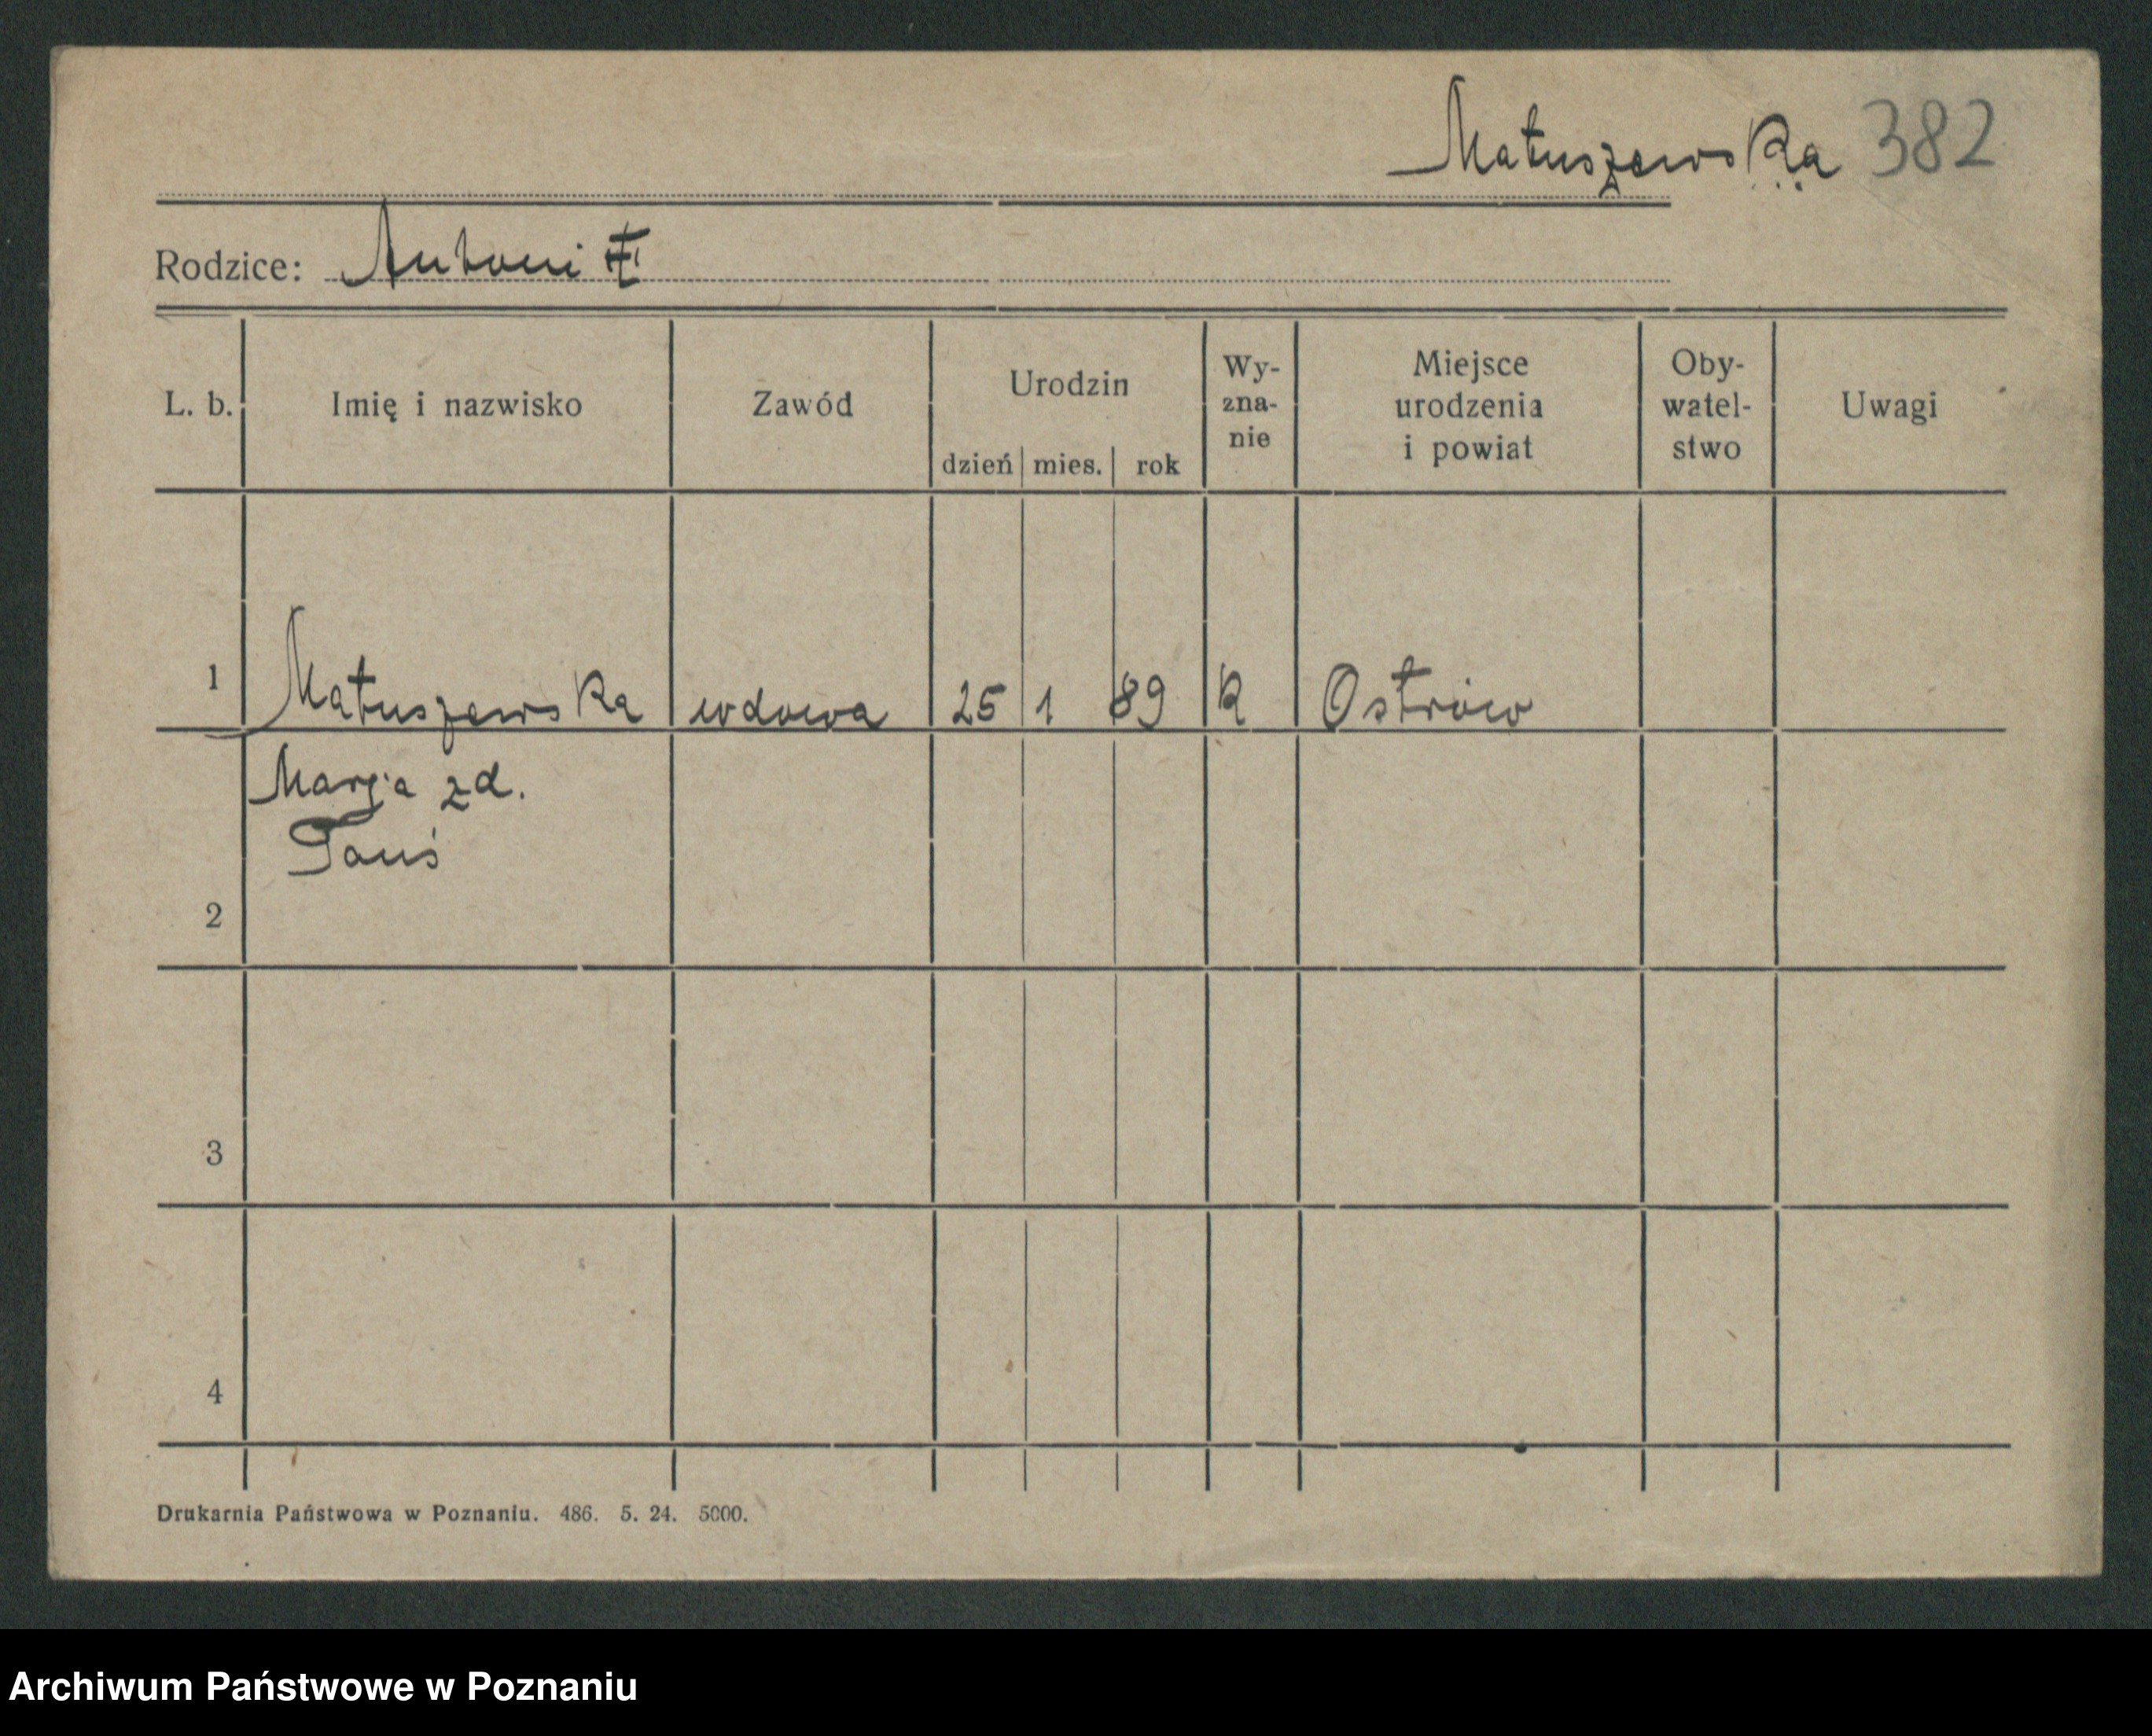 Matuszewska 382
Rodzice: Antoni
L. b. Imię i nazwisko Zawód Urodzin dzień mies. rok Wy-zna-nie Miejsce urodzenia i powiat Oby-watel-stwo Uwagi
1 Matuszewska wdowa 25 1 89 k Ostrów
Marja zd.
2
3
4
Drukarnia Państwowa w Poznaniu. 486. 5. 24. 5000.
Archiwum Państwowe w Poznaniu